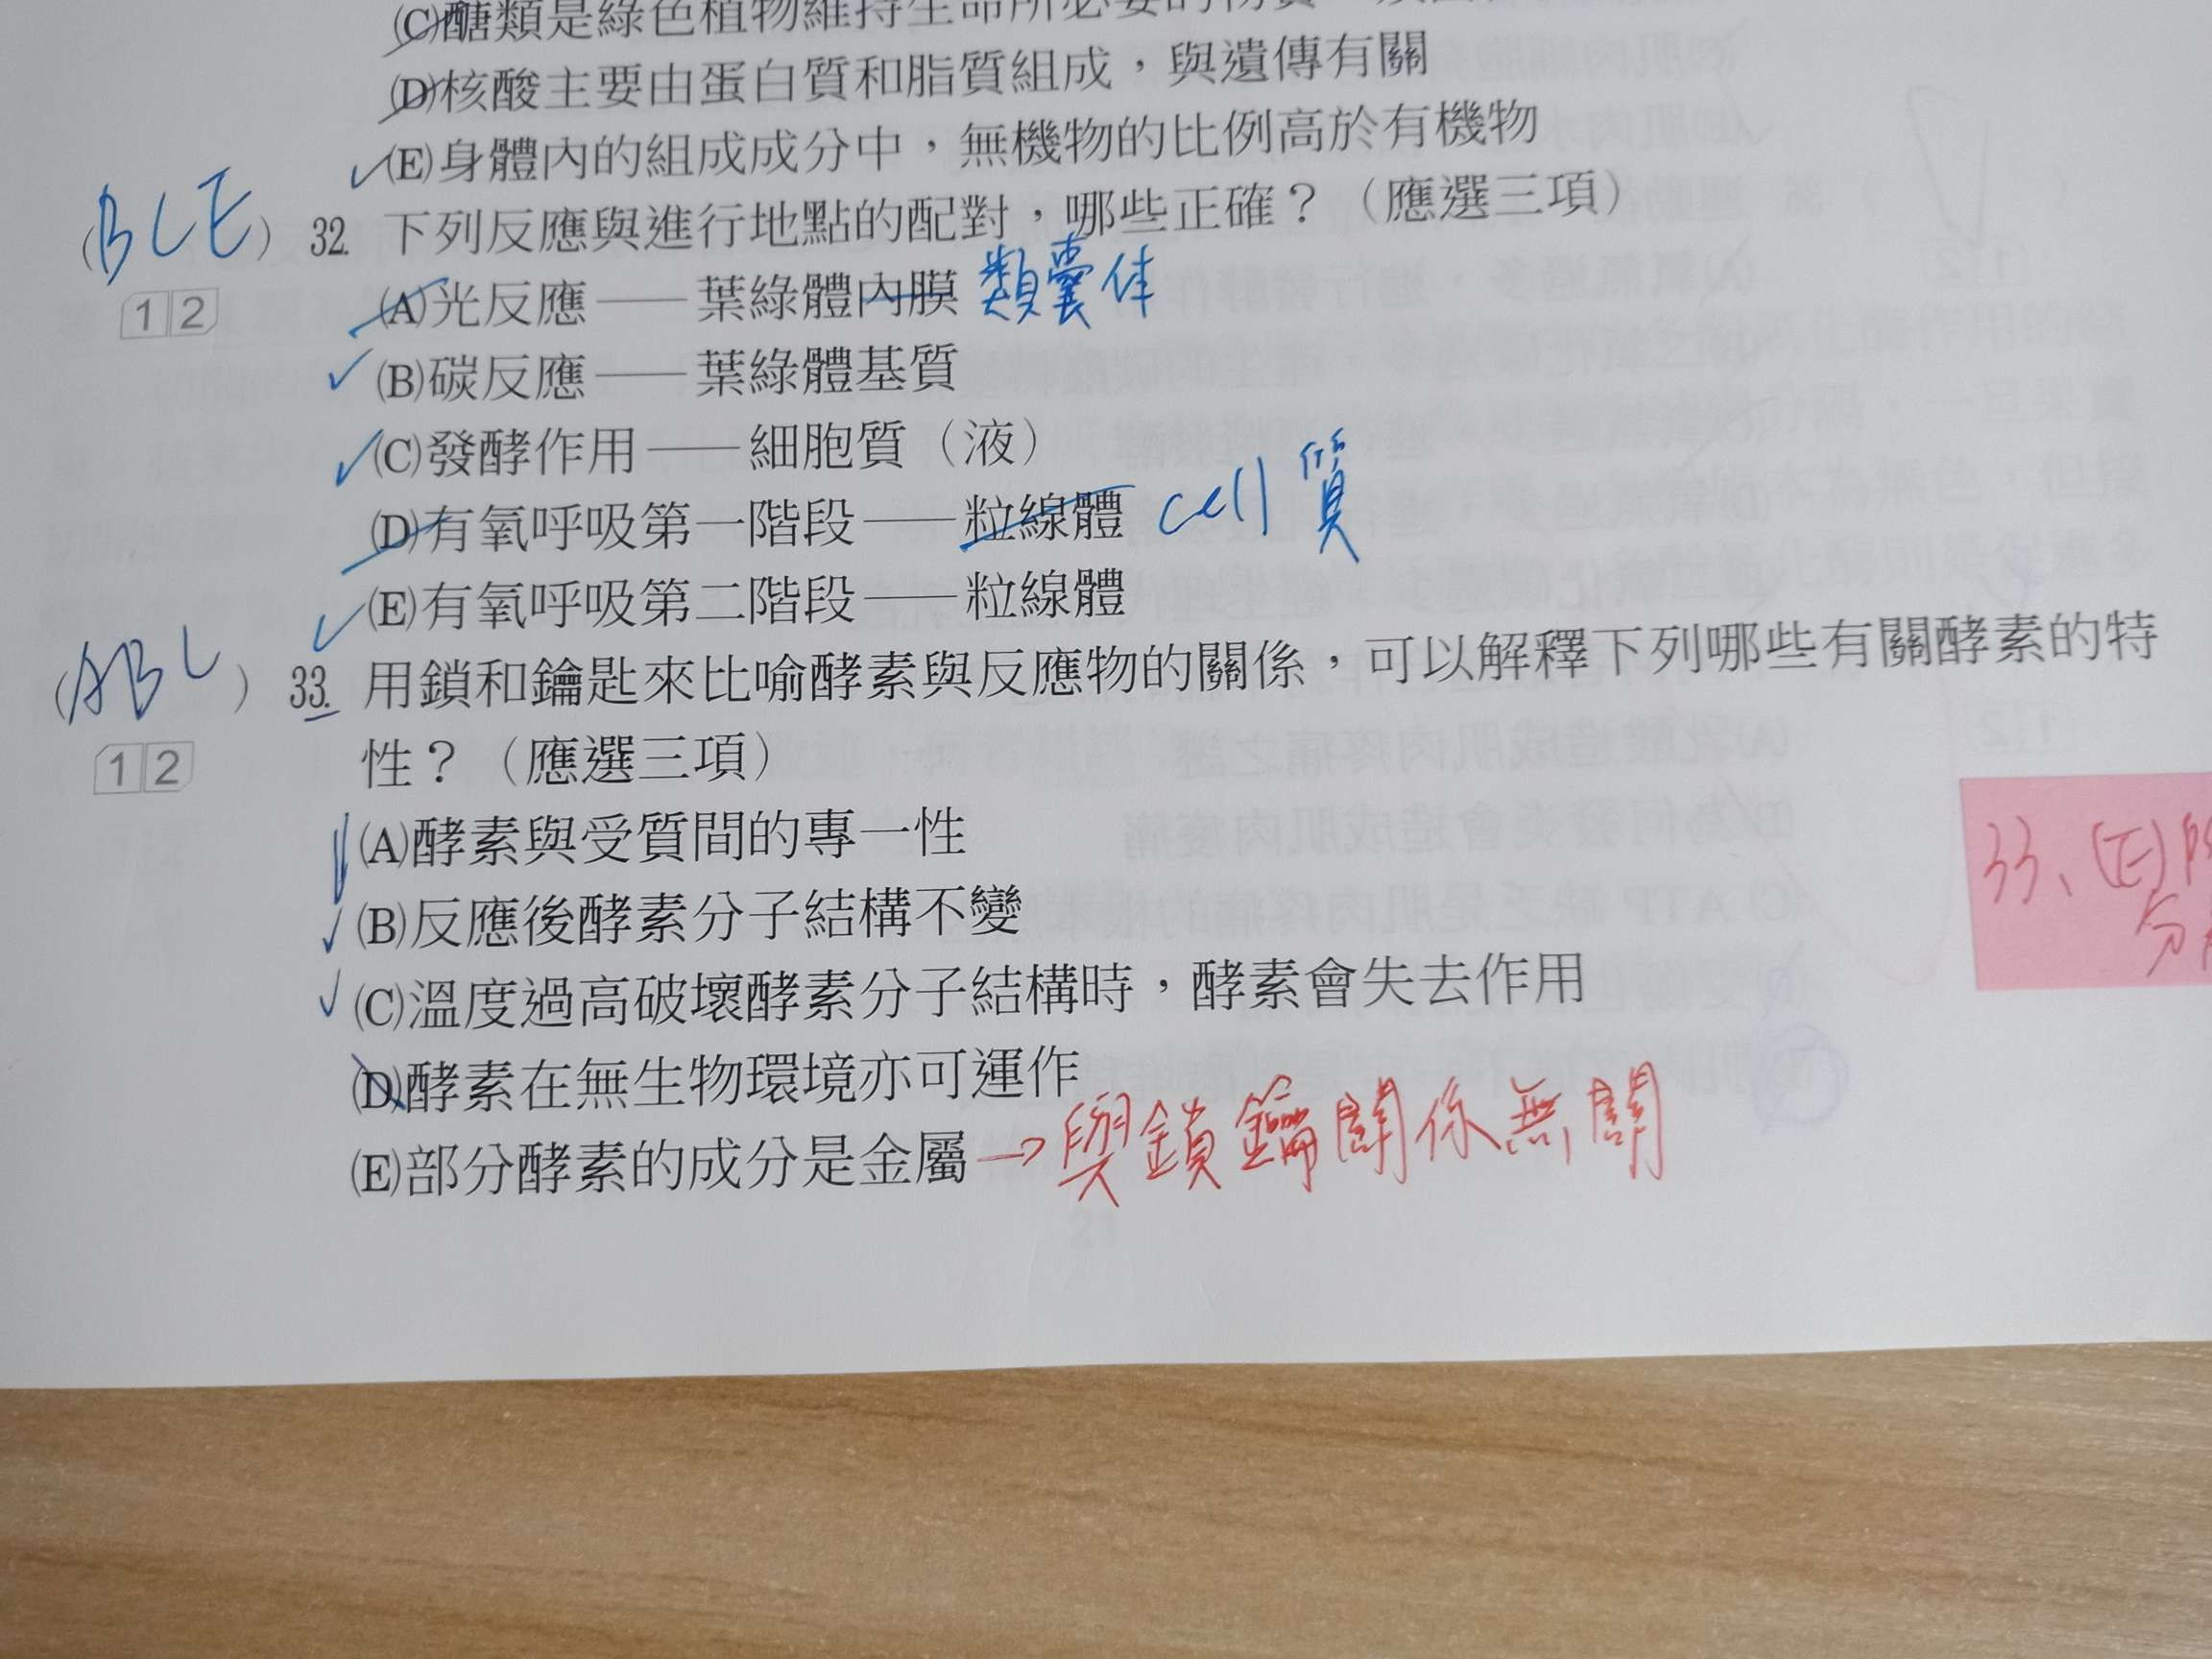 (C)醣類是綠色植物維持生命所必要的物質
(D)核酸主要由蛋白質和脂質組成，與遺傳有關
(E)身體內的組成成分中，無機物的比例高於有機物
(BCE) 32. 下列反應與進行地點的配對，哪些正確？（應選三項）
1 2
(A)光反應——葉綠體內膜 類囊体
(B)碳反應——葉綠體基質
(C)發酵作用——細胞質（液）
(D)有氧呼吸第一階段——粒線體 cell 質
(E)有氧呼吸第二階段——粒線體
(ABC) 33. 用鎖和鑰匙來比喻酵素與反應物的關係，可以解釋下列哪些有關酵素的特
性？（應選三項）
1 2
(A)酵素與受質間的專一性
(B)反應後酵素分子結構不變
(C)溫度過高破壞酵素分子結構時，酵素會失去作用
(D)酵素在無生物環境亦可運作
(E)部分酵素的成分是金屬→與鎖鑰關係無關
33、(E)